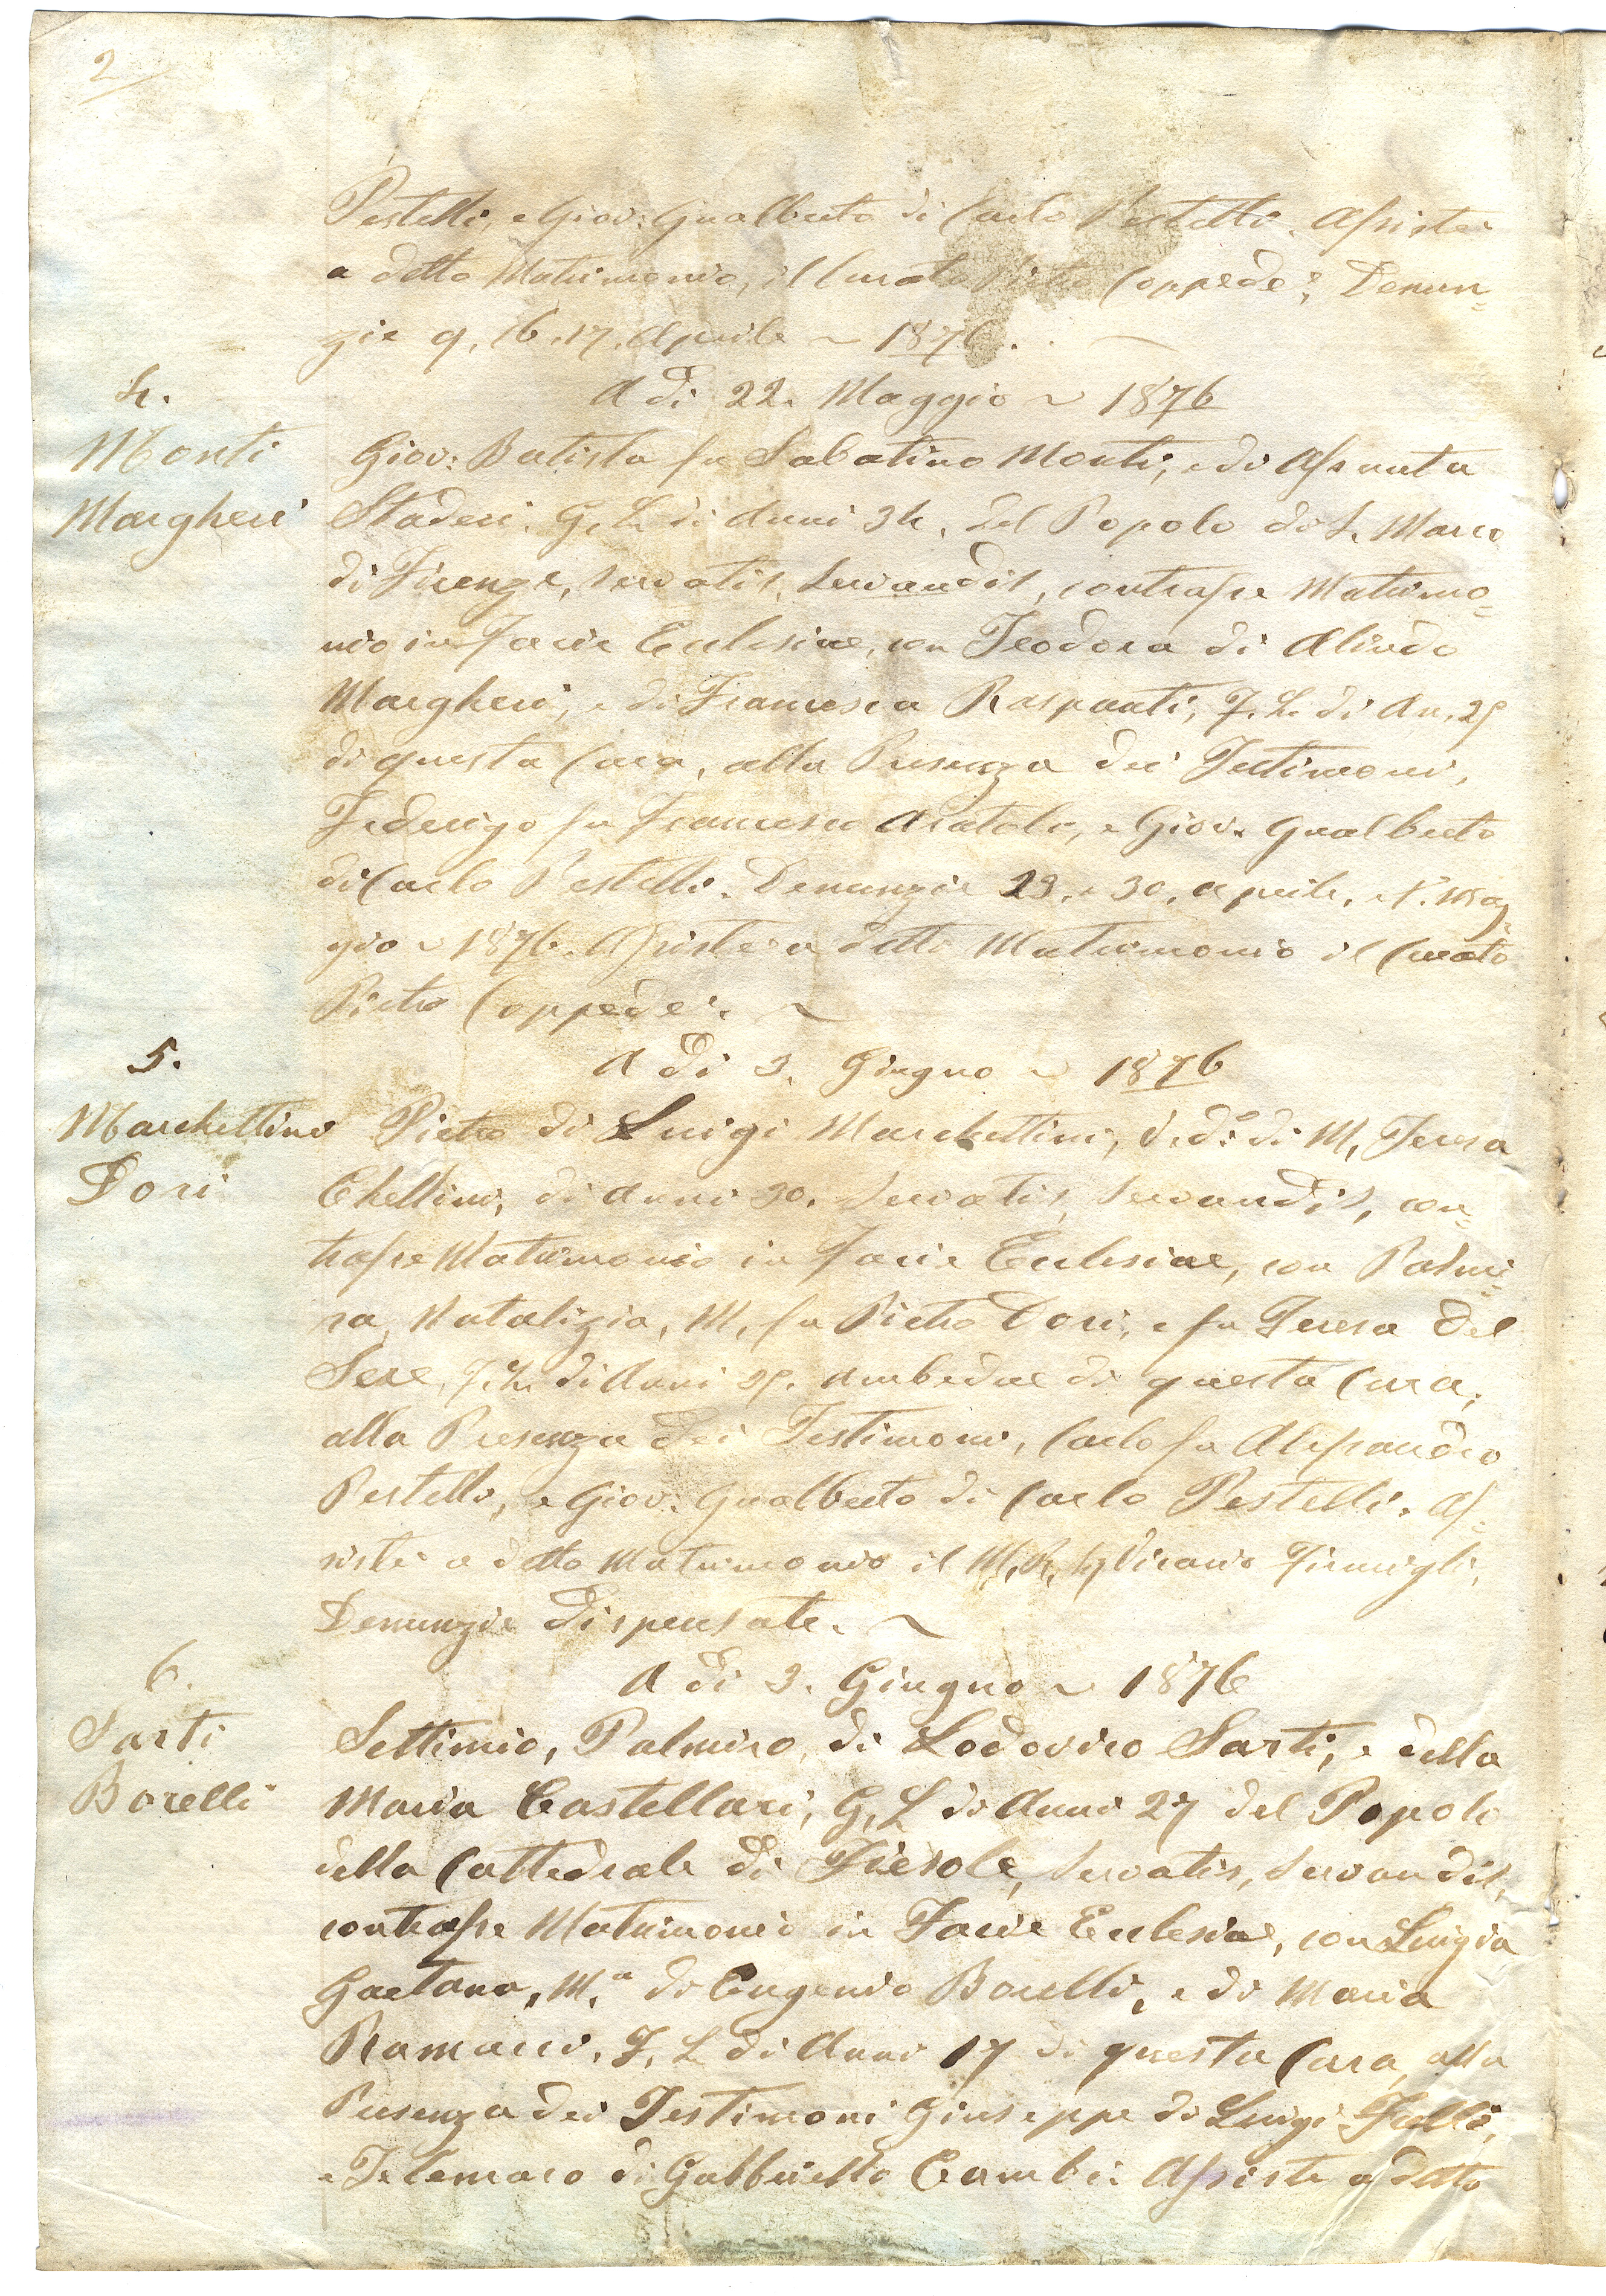 2
Pestelli, e Giov: Gualberto di Carlo Pestelli. Assistei
a detto Matrimonio, il Curato Pietro Coppedei, Denun=
zie 9, 16. 17. Aprile ~ 1876.
A di 22. Maggio ~ 1876
4.
Monti
Margheri
Giov: Batista fu Sabatino Monti, e di Assunta
Staderi. G, L. di Anni 34, del Popolo di S. Marco
di Firenze, servatis, servandis, contrasse Matrimo=
nio in Facie Ecclesiae, con Teodora di Olindo
Margheri, e di Francesca Raspanti, F. L. di An. 25
di questa Cura, alla Presenza dei Testimoni,
Federigo fu Francesco, e Giov. Gualberto
di Carlo Pestelli. Denunzie 23. e 30. Aprile, e 1. Mag=
gio ~ 1876. Assistei a detto Matrimonio il Curato
Pietro Coppedei. ~
A di 3. Giugno ~ 1876
5.
Marchettini
Dori
Pietro di Luigi Marchettini, di M, Teresa
Chellini, di Anni 30. servatis, servandis, con=
trasse Matrimonio in Facie Ecclesiae, con Palmi=
ra, Natalizia, M, fu Pietro Dori, e fu Teresa Del
Sere, F. L. di Anni 25. Ambedue di questa Cura,
alla Presenza dei Testimoni, Carlo fu Alessandro
Pestelli, e Giov: Gualberto di Carlo Pestelli. As=
sistei a detto Matrimonio il M, R, Vicario
Denunzie Dispensate. ~
A di 3. Giugno ~ 1876
6.
Sarti
Borelli
Settimio, Palmiro, di Lodovico Sarti, e della
Maria Castellari, G, L di Anni 27 del Popolo
della Cattedrale di Fiesole, servatis, servandis,
contrasse Matrimonio in Facie Ecclesiae, con Luigia
Gaetana, M.ª di Eugenio Borelli, e di Maria
Ramacci, F, L di Anni 17 di questa Cura, alla
Presenza dei Testimoni Giuseppe di Luigi Fulli,
e Telemaco di Gabbriello Cambi: Assistei a detto